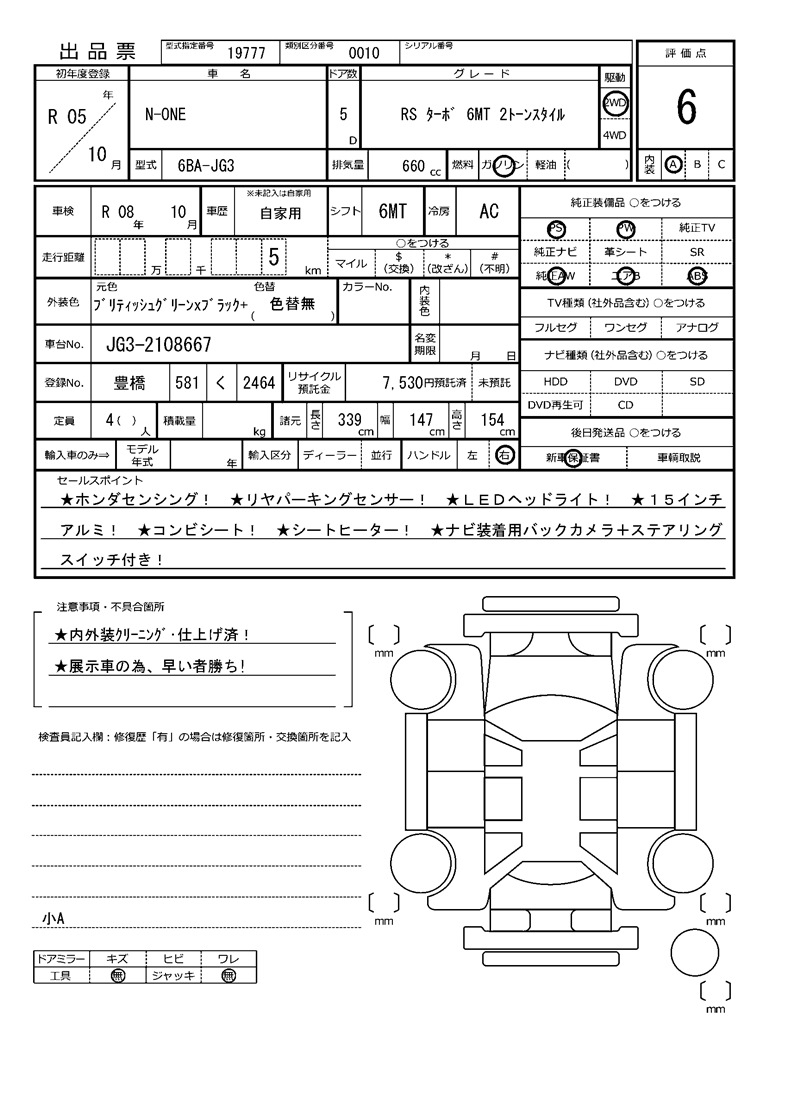 出品票 型式指定番号 19777 類別区分番号 0010 シリアル番号
評価点
6
内装 A B C
初年度登録 車名 ドア数 グレード 駆動
R 05 年 10 月 N-ONE 5 D RS ﾀｰﾎﾞ 6MT 2ﾄｰﾝｽﾀｲﾙ 2WD 4WD
型式 6BA-JG3 排気量 660 cc 燃料 ガソリン 軽油 ( )
車検 R 08 年 10 月 車歴 ※未記入は自家用 自家用 シフト 6MT 冷房 AC
走行距離 万 千 5 km ○をつける
マイル $(交換) *(改ざん) #(不明)
外装色 元色 ﾌﾞﾘﾃｨｯｼｭｸﾞﾘｰﾝxﾌﾞﾗｯｸ+ 色替 ( 色替無 ) カラーNo. 内装色
車台No. JG3-2108667 名変期限 月 日
登録No. 豊橋 581 く 2464 リサイクル預託金 7,530円預託済 未預託
定員 4 ( ) 人 積載量 kg 諸元 長さ 339 cm 幅 147 cm 高さ 154 cm
輸入車のみ⇒ モデル年式 年 輸入区分 ディーラー 並行 ハンドル 左 右
純正装備品 ○をつける
PS PW 純正TV
純正ナビ 革シート SR
純正AW エアB ABS
TV種類(社外品含む)○をつける
フルセグ ワンセグ アナログ
ナビ種類(社外品含む)○をつける
HDD DVD SD
DVD再生可 CD
後日発送品 ○をつける
新車保証書 車輌取説
セールスポイント
★ホンダセンシング！ ★リヤパーキングセンサー！ ★ＬＥＤヘッドライト！ ★１５インチ
アルミ！ ★コンビシート！ ★シートヒーター！ ★ナビ装着用バックカメラ＋ステアリング
スイッチ付き！
注意事項・不具合箇所
★内外装ｸﾘｰﾆﾝｸﾞ･仕上げ済！
★展示車の為、早い者勝ち!
検査員記入欄：修復歴「有」の場合は修復箇所・交換箇所を記入
小A
ドアミラー キズ ヒビ ワレ
工具 無 ジャッキ 無
mm
mm
mm
mm
mm